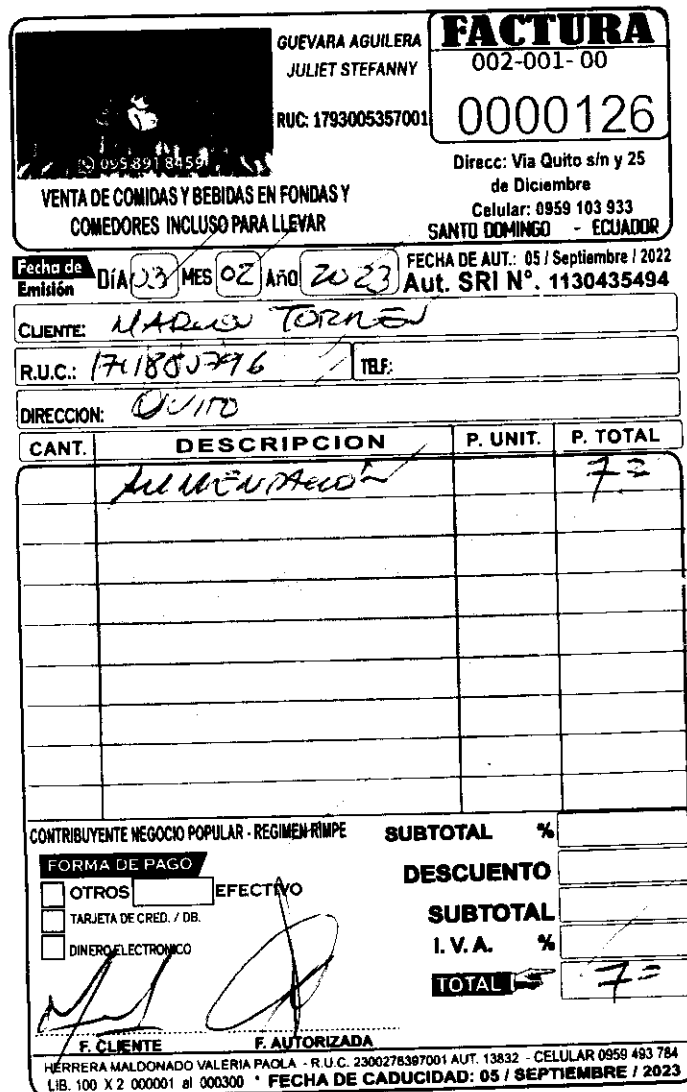 GUEVARA AGUILERA
JULIET STEFANNY
RUC: 1793005357001
FACTURA
002-001- 00
0000126
095 891 8459
VENTA DE COMIDAS Y BEBIDAS EN FONDAS Y
COMEDORES INCLUSO PARA LLEVAR
Direcc: Via Quito s/n y 25
de Diciembre
Celular: 0959 103 933
SANTO DOMINGO - ECUADOR
Fecha de Emisión DÍA 03 MES 02 AÑO 2023
FECHA DE AUT.: 05 / Septiembre / 2022
Aut. SRI Nº. 1130435494
CLIENTE:
R.U.C.: TELF.:
DIRECCION: QUITO
CANT. DESCRIPCION P. UNIT. P. TOTAL
ALIMENTACIÓN 7=
CONTRIBUYENTE NEGOCIO POPULAR - REGIMEN RIMPE
SUBTOTAL %
FORMA DE PAGO
DESCUENTO
OTROS EFECTIVO
SUBTOTAL
TARJETA DE CRED. / DB.
I.V.A. %
DINERO ELECTRONICO
TOTAL 7=
F. CLIENTE F. AUTORIZADA
HERRERA MALDONADO VALERIA PAOLA - R.U.C. 2300278397001 AUT. 13832 - CELULAR 0959 493 784
LIB. 100 X 2 000001 al 000300 * FECHA DE CADUCIDAD: 05 / SEPTIEMBRE / 2023